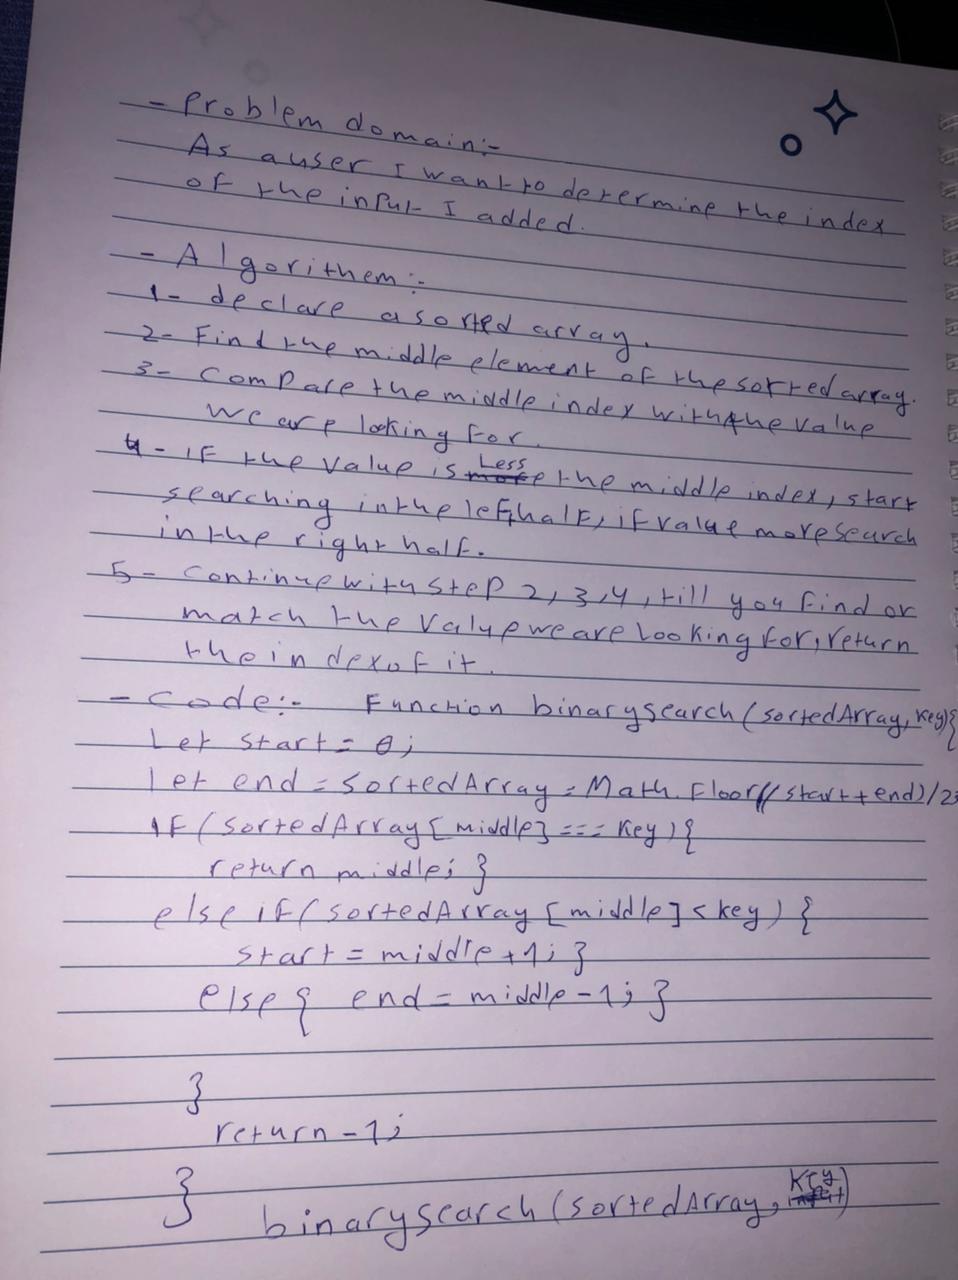 - Problem domain:-
As a user I want to determine the index
of the input I added.
- Algorithem:-
1- declare a sorted array.
2- Find the middle element of the sorted array.
3- Compare the middle index with the value
we are looking for.
4- if the value is Less the middle index, start
searching in the left half, if value more search
in the right half.
5- Continue with step 2,3,4, till you find or
match the value we are looking for, return
the index of it.
- Code:- Function binarysearch(sortedArray, key){
Let start = 0;
let end = sortedArray = Math.Floor((start+end)/2)
if(sortedArray[middle] === Key){
return middle; }
else if(sortedArray[middle] < key) {
start = middle+1; }
else { end = middle-1; }
}
return -1;
}
binarysearch(sortedArray, Key)